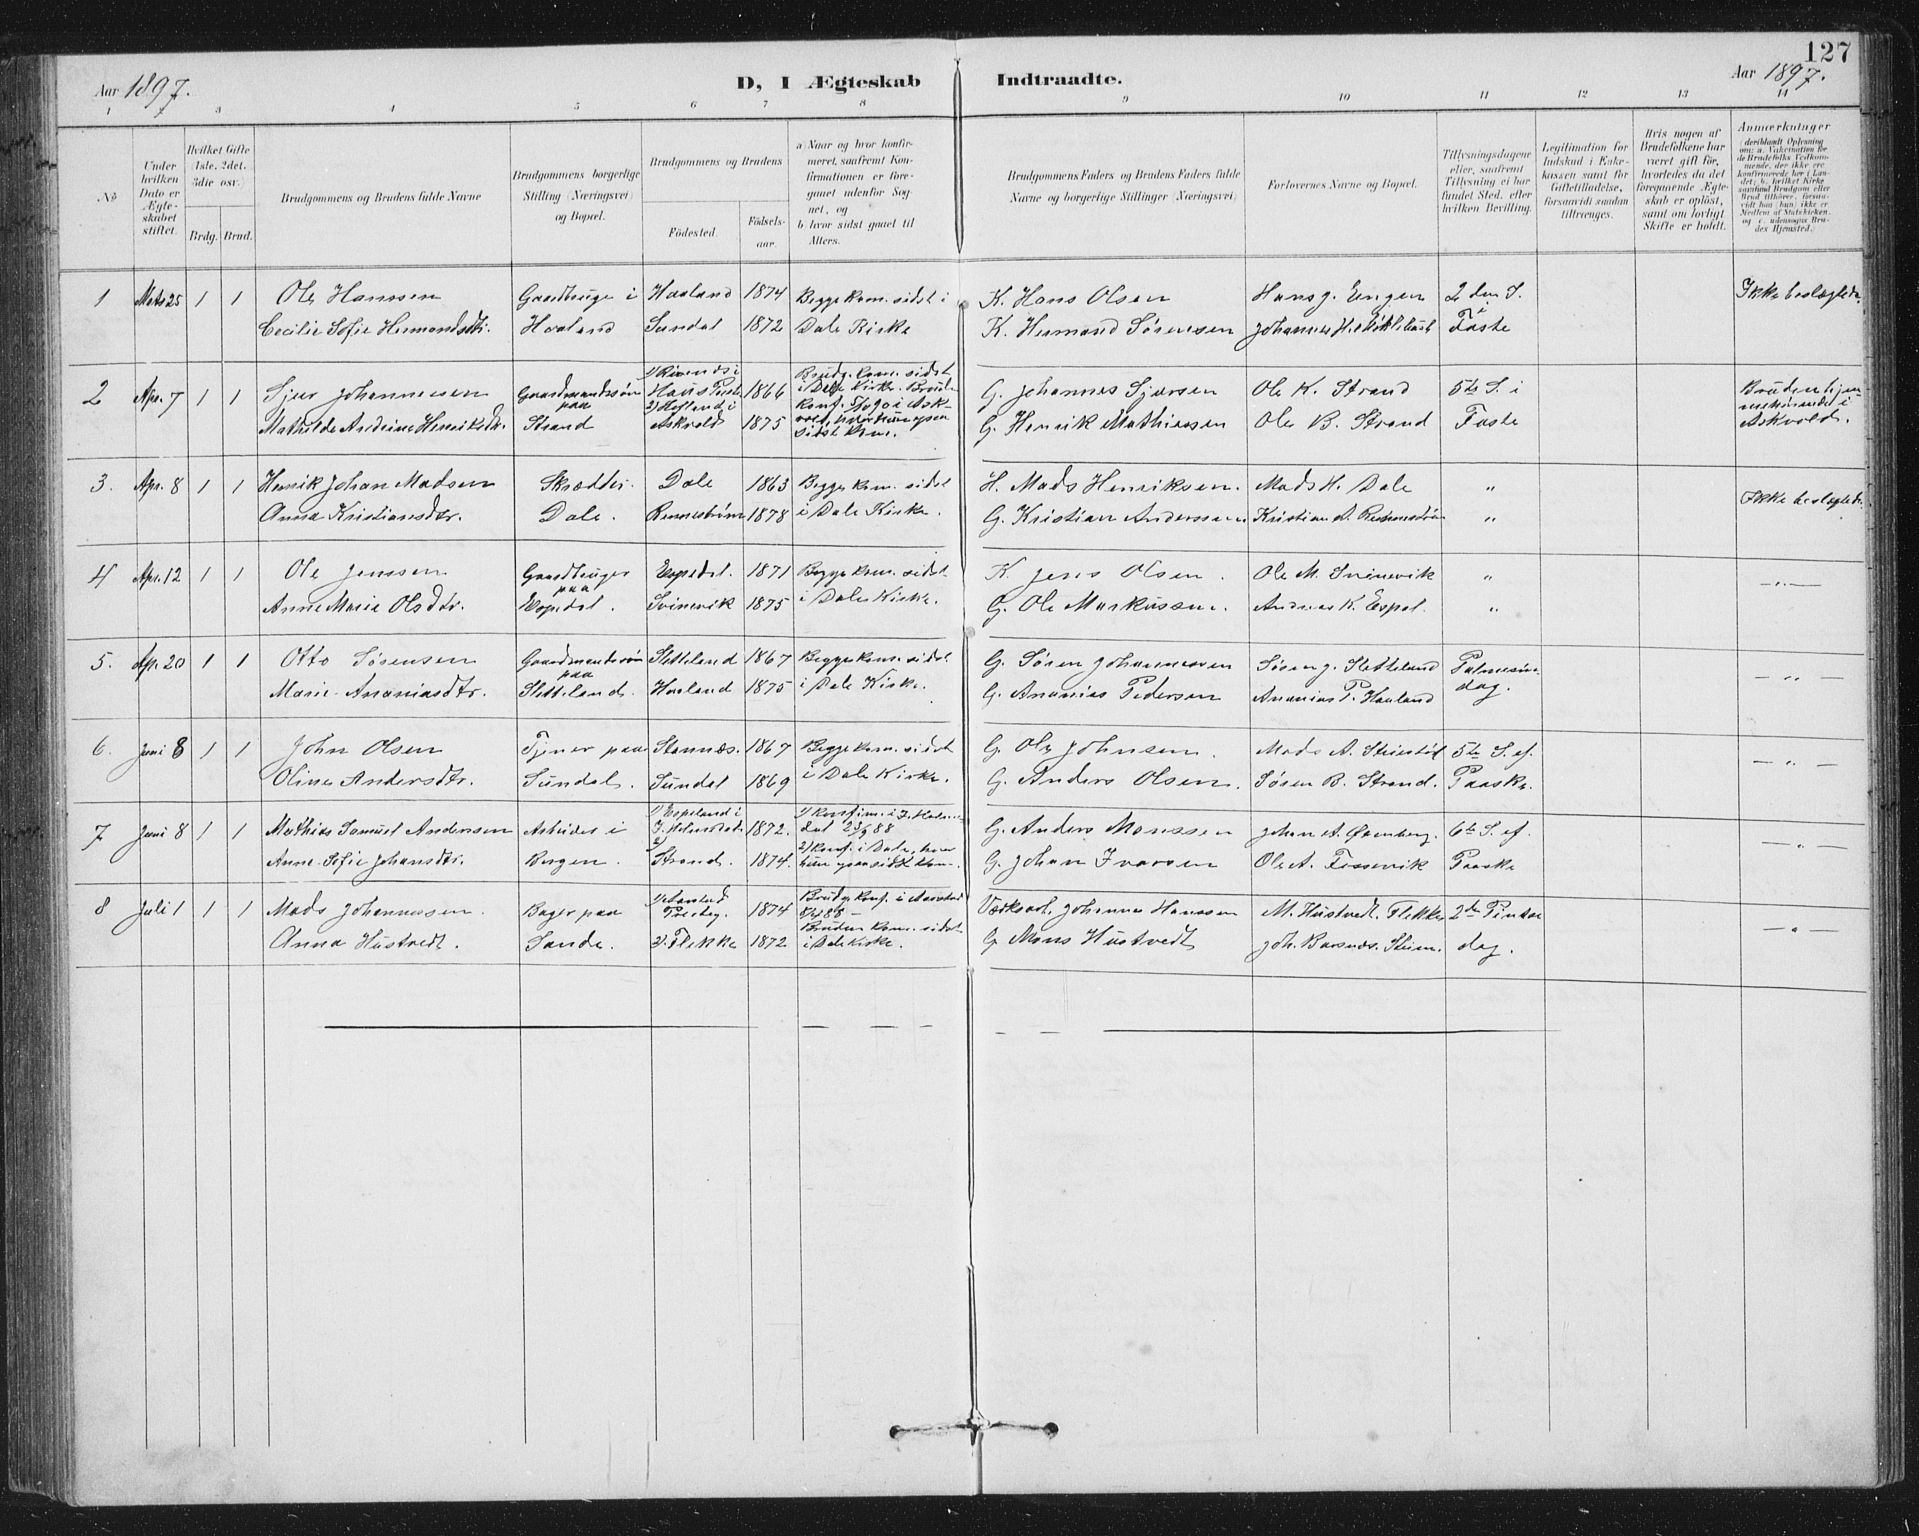 127
Aar 1897.
D, I Ægteskab Indtraadte.
Aar 1897.
1 2 3 4 5 6 7 8 9 10 11 12 13 14
No
Under hvilken Dato er Ægteskabet stiftet.
Hvilket Gifte (1ste, 2det, 3die osv.)
Brdg. Brud.
Brudgommens og Brudens fulde Navne
Brudgommens borgerlige Stilling (Næringsvei) og Bopæl.
Brudgommens og Brudens
Fødested.
Fødselsaar.
a Naar og hvor konfirmeret, saafremt Konfirmationen er foregaaet udenfor Sognet, og
b hvor sidst gaaet til Alters.
Brudgommens Faders og Brudens Faders fulde Navne og borgerlige Stillinger (Næringsvei)
Forlovernes Navne og Bopæl.
Tillysningsdagene eller, saafremt Tillysning ei har fundet Sted, efter hvilken Bevilling.
Legitimation for Indskud i Enkekassen samt for Giftetilladelse, forsaavidt saadan tiltrænges.
Hvis nogen af Brudefolkene har været gift før, hvorledes da det foregaaende Ægteskab er opløst, samt om lovligt Skifte er holdt.
Anmærkninger
(deriblandt Oplysning om: a. Vakcination for de Brudefolks Vedkommende, der ikke ere konfirmerede her i Landet; b. hvilket Kirkesamfund Brudgom eller Brud tilhører, forsaavidt han (hun) ikke er Medlem af Statskirken, og c. udensogns Brudes Hjemsted.)
1 Mats 25 1 1 Ole Hanssen Gaardbruger i Haaland 1874 Begge kom. sidst i K. Hans Olsen Hans J. Engen 2den S. Ikke beslægtede
Cecilie Sofie Hermandsdtr. Haaland Sundal 1872 Dale Kirke K. Hermand Sørensen Johannes H. i Faste
2 Apr. 7 1 1 Sjur Johannessen Gaardmandssøn 1866 Brudg. kom. sidst i Dale Kirke. G. Johannes Sjursen Ole K. Strand 5te S. i
Mathilde Andrine Henriksdtr. paa Strand 2) i Askvold 1875 konf. 5/10 90 i Askvold, sidst kom. G. Henrik Mathiassen Ole B. Strand Faste Askvold.
3. Apr. 8 1 1 Henrik Johan Madsen Skrædder. Dale 1863 Begge kom. sidst H. Mads Henriksen. Mads H. Dale "
Anna Kristiansdtr. Dale. 1878 i Dale Kirke. G. Kristian Anderssen Kristian A. " Ikke beslægtede.
4 Apr. 12 1 1 Ole Jenssen Gaardbruger Espedal. 1871 Begge kom. sidst K. Jens Olsen. Ole M. Svinevik " —"—
Anne Marie Olsdtr. paa Espedal. Svinevik 1875 i Dale Kirke. G. Ole Markussen. Andreas K. Espel. "
5. Ap. 20 1 1 Otto Sørensen Gaardmandssøn Sletteland 1867 Begge kom. sidst G. Søren Johannessen Søren J. Sletteland Palmesøn-
Marie Ananiasdtr. paa Sletteland. Haaland 1875 i Dale Kirke. G. Ananias Pedersen Ananias P. Haaland dag. —"—
6. Juni 8 1 1 John Olsen Tjener paa 1867 Begge kom. sidst G. Ole Johnsen. Mads A. 5te S. ef.
Oline Andersdtr. Sundal. Sundal 1869 i Dale Kirke. G. Anders Olsen. Søren B. Strand. Paaske. —"—
7 Juni 8 1 1 Mathias Samuel Andersen Arbeider i 1) Espeland i 1872. 1) Konfirm. i 23/9 88 G. Anders Monssen Johan A. 6te S. ef.
Anne Sofie Johansdtr. Bergen. 2) Strand. 1874. 2) Konf. i Dale, hvor hun ogsaa sidst kom. G. Johan Ivarsen Ole A. Paaske —"—
8 Juli 1 1 1 Mads Johannessen. Bager paa 1874 Brudg. konf. i 88 Johannes Hanssen M. Hustvedt. Flekke 2den Pindse
Anna Hustvedt. Sande. 2) Flekke 1872 Bruden kom. sidst i Dale Kirke. G. Mons Hustvedt Joh. dag. —"—